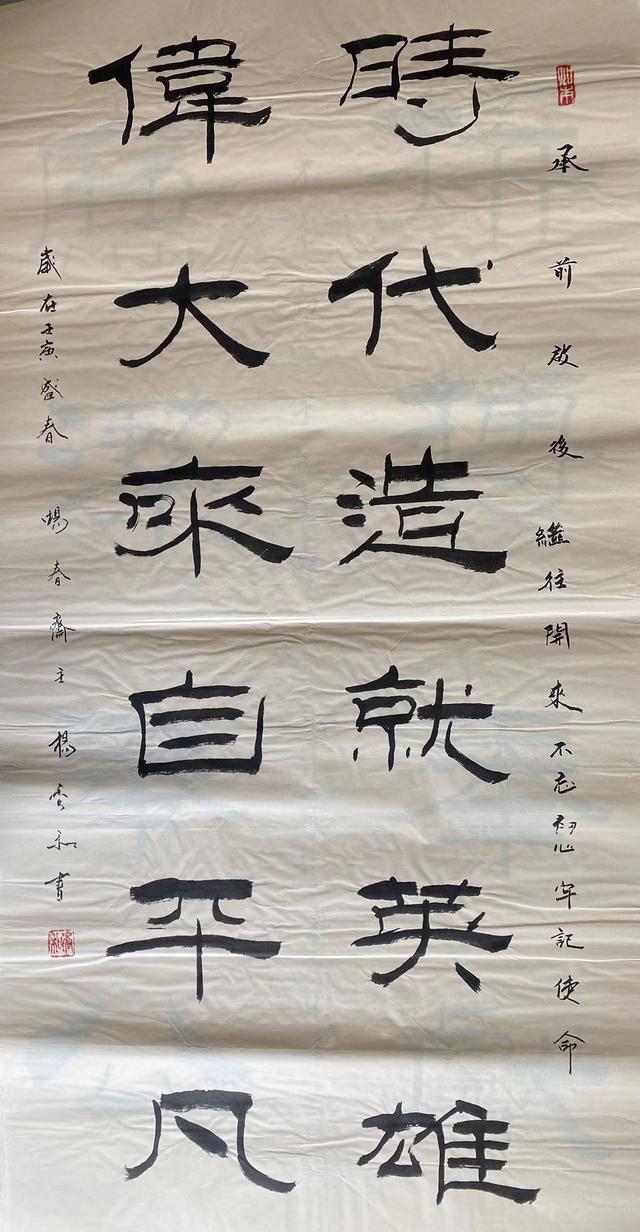 承前啟後繼往開來不忘初心牢記使命
時代造就英雄
偉大來自平凡
歲在壬寅盛春暘春齋主楊雲和書